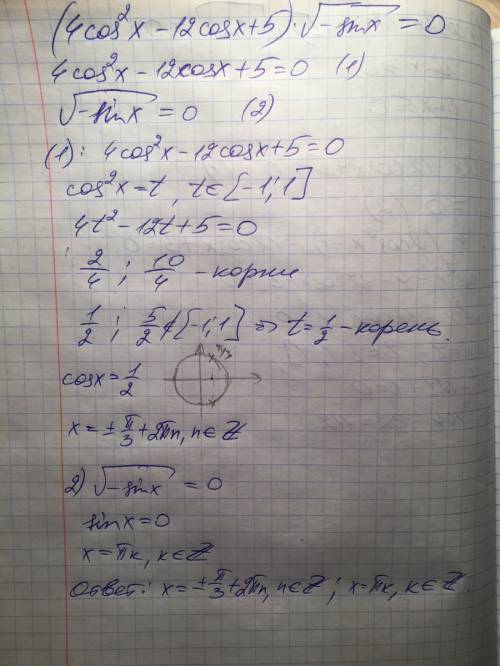 (4cos²x - 12cosx + 5) · √(-sinx) = 0
4cos²x - 12cosx + 5 = 0 (1)
√(-sinx) = 0 (2)
(1): 4cos²x - 12cosx + 5 = 0
cos²x = t, t ∈ [-1; 1]
4t² - 12t + 5 = 0
2/4 ; 10/4 - корни
1/2 ; 5/2 ∉ [-1; 1] => t = 1/2 - корень.
cosx = 1/2
π/3
x = ± π/3 + 2πn, n ∈ Z
2) √(-sinx) = 0
sinx = 0
x = πk, k ∈ Z
Ответ: x = ± π/3 + 2πn, n ∈ Z ; x = πk, k ∈ Z.